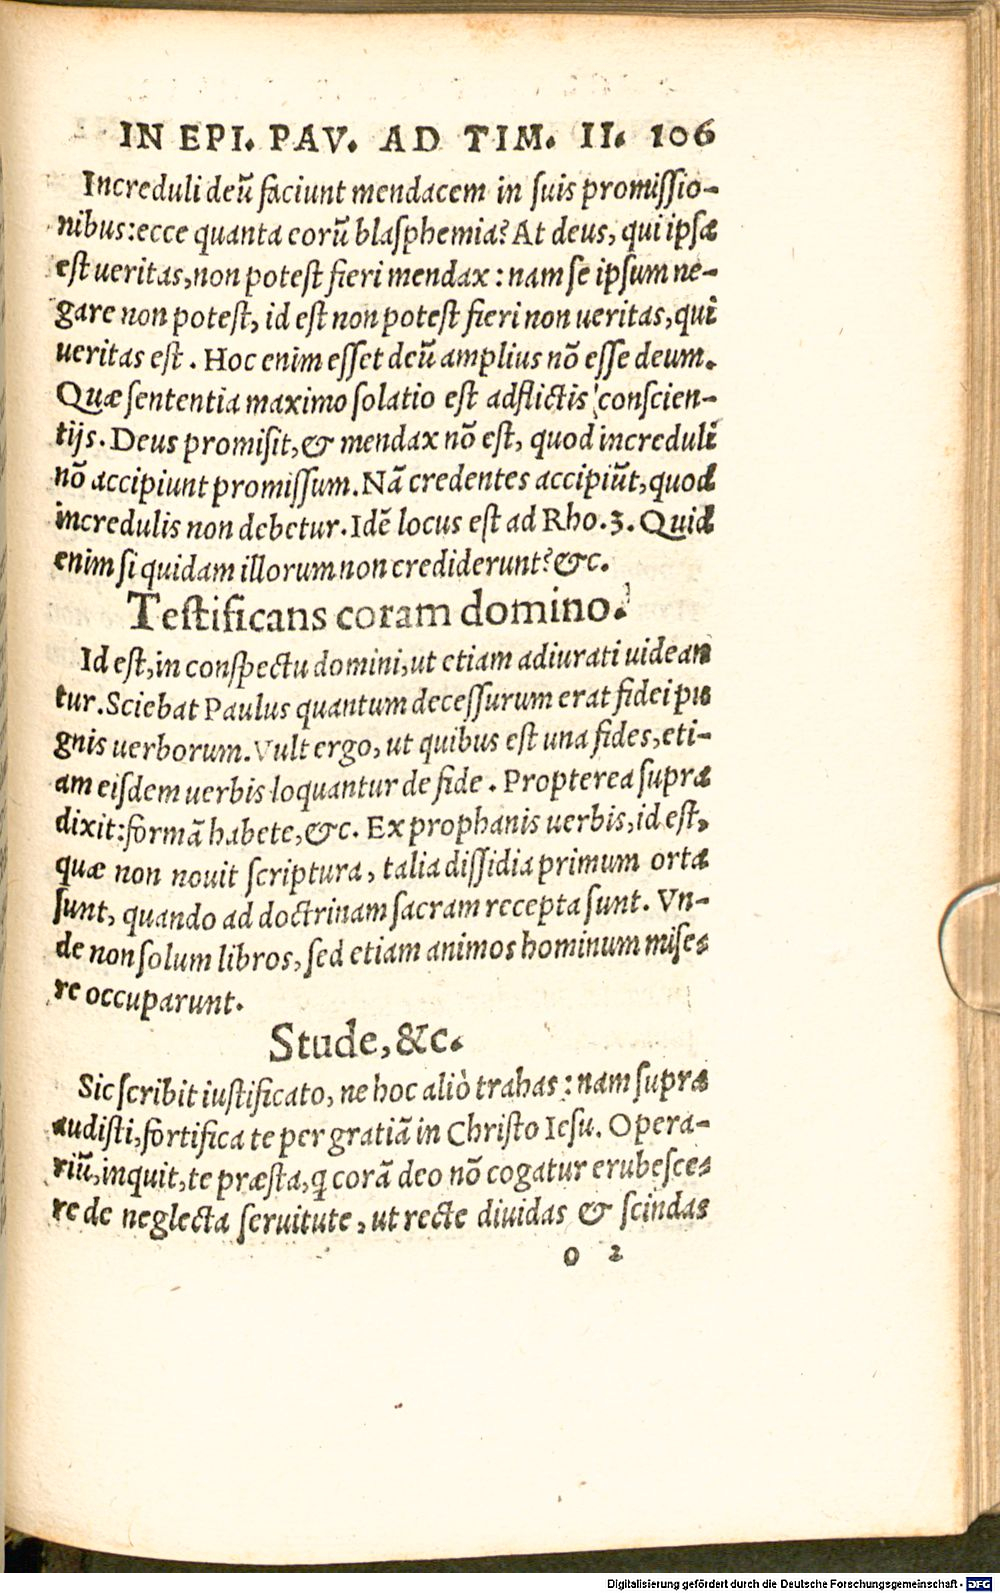 IN EPI. PAV. AD TIM. II. 106
Increduli deū faciunt mendacem in ſuis promiſſio-
nibus: ecce quanta corū blaſphemia? At deus, qui ipſa
eſt ueritas, non poteſt fieri mendax: nam ſe ipſum ne-
gare non poteſt, id eſt non poteſt fieri non ueritas, qui
ueritas eſt. Hoc enim eſſet deū amplius nō eſſe deum.
Quæ ſententia maximo ſolatio eſt adflictis conſcien-
tijs. Deus promiſit, & mendax nō eſt, quod increduli
nō accipiunt promiſſum. Nā credentes accipiūt, quod
incredulis non debetur. Idē locus eſt ad Rho. 3. Quid
enim ſi quidam illorum non crediderunt? &c.
Teſtificans coram domino.
Id eſt, in conſpectu domini, ut etiam adiurati uidean
tur. Sciebat Paulus quantum deceſſurum erat fidei pu
gnis uerborum. Vult ergo, ut quibus eſt una fides, eti-
am eiſdem uerbis loquantur de fide. Propterea ſupra
dixit: formā habete, &c. Ex prophanis uerbis, id eſt,
quæ non nouit ſcriptura, talia diſſidia primum orta
ſunt, quando ad doctrinam ſacram recepta ſunt. Vn-
de non ſolum libros, ſed etiam animos hominum miſe-
re occuparunt.
Stude, &c.
Sic ſcribit iuſtificato, ne hoc aliò trahas: nam ſupra
audiſti, fortifica te per gratiā in Chriſto Ieſu. Opera-
riū, inquit, te præſta, ꝗ corā deo nō cogatur erubeſce-
re de neglecta ſeruitute, ut recte diuidas & ſcindas
O 2
Digitalisierung gefördert durch die Deutsche Forschungsgemeinschaft - DFG